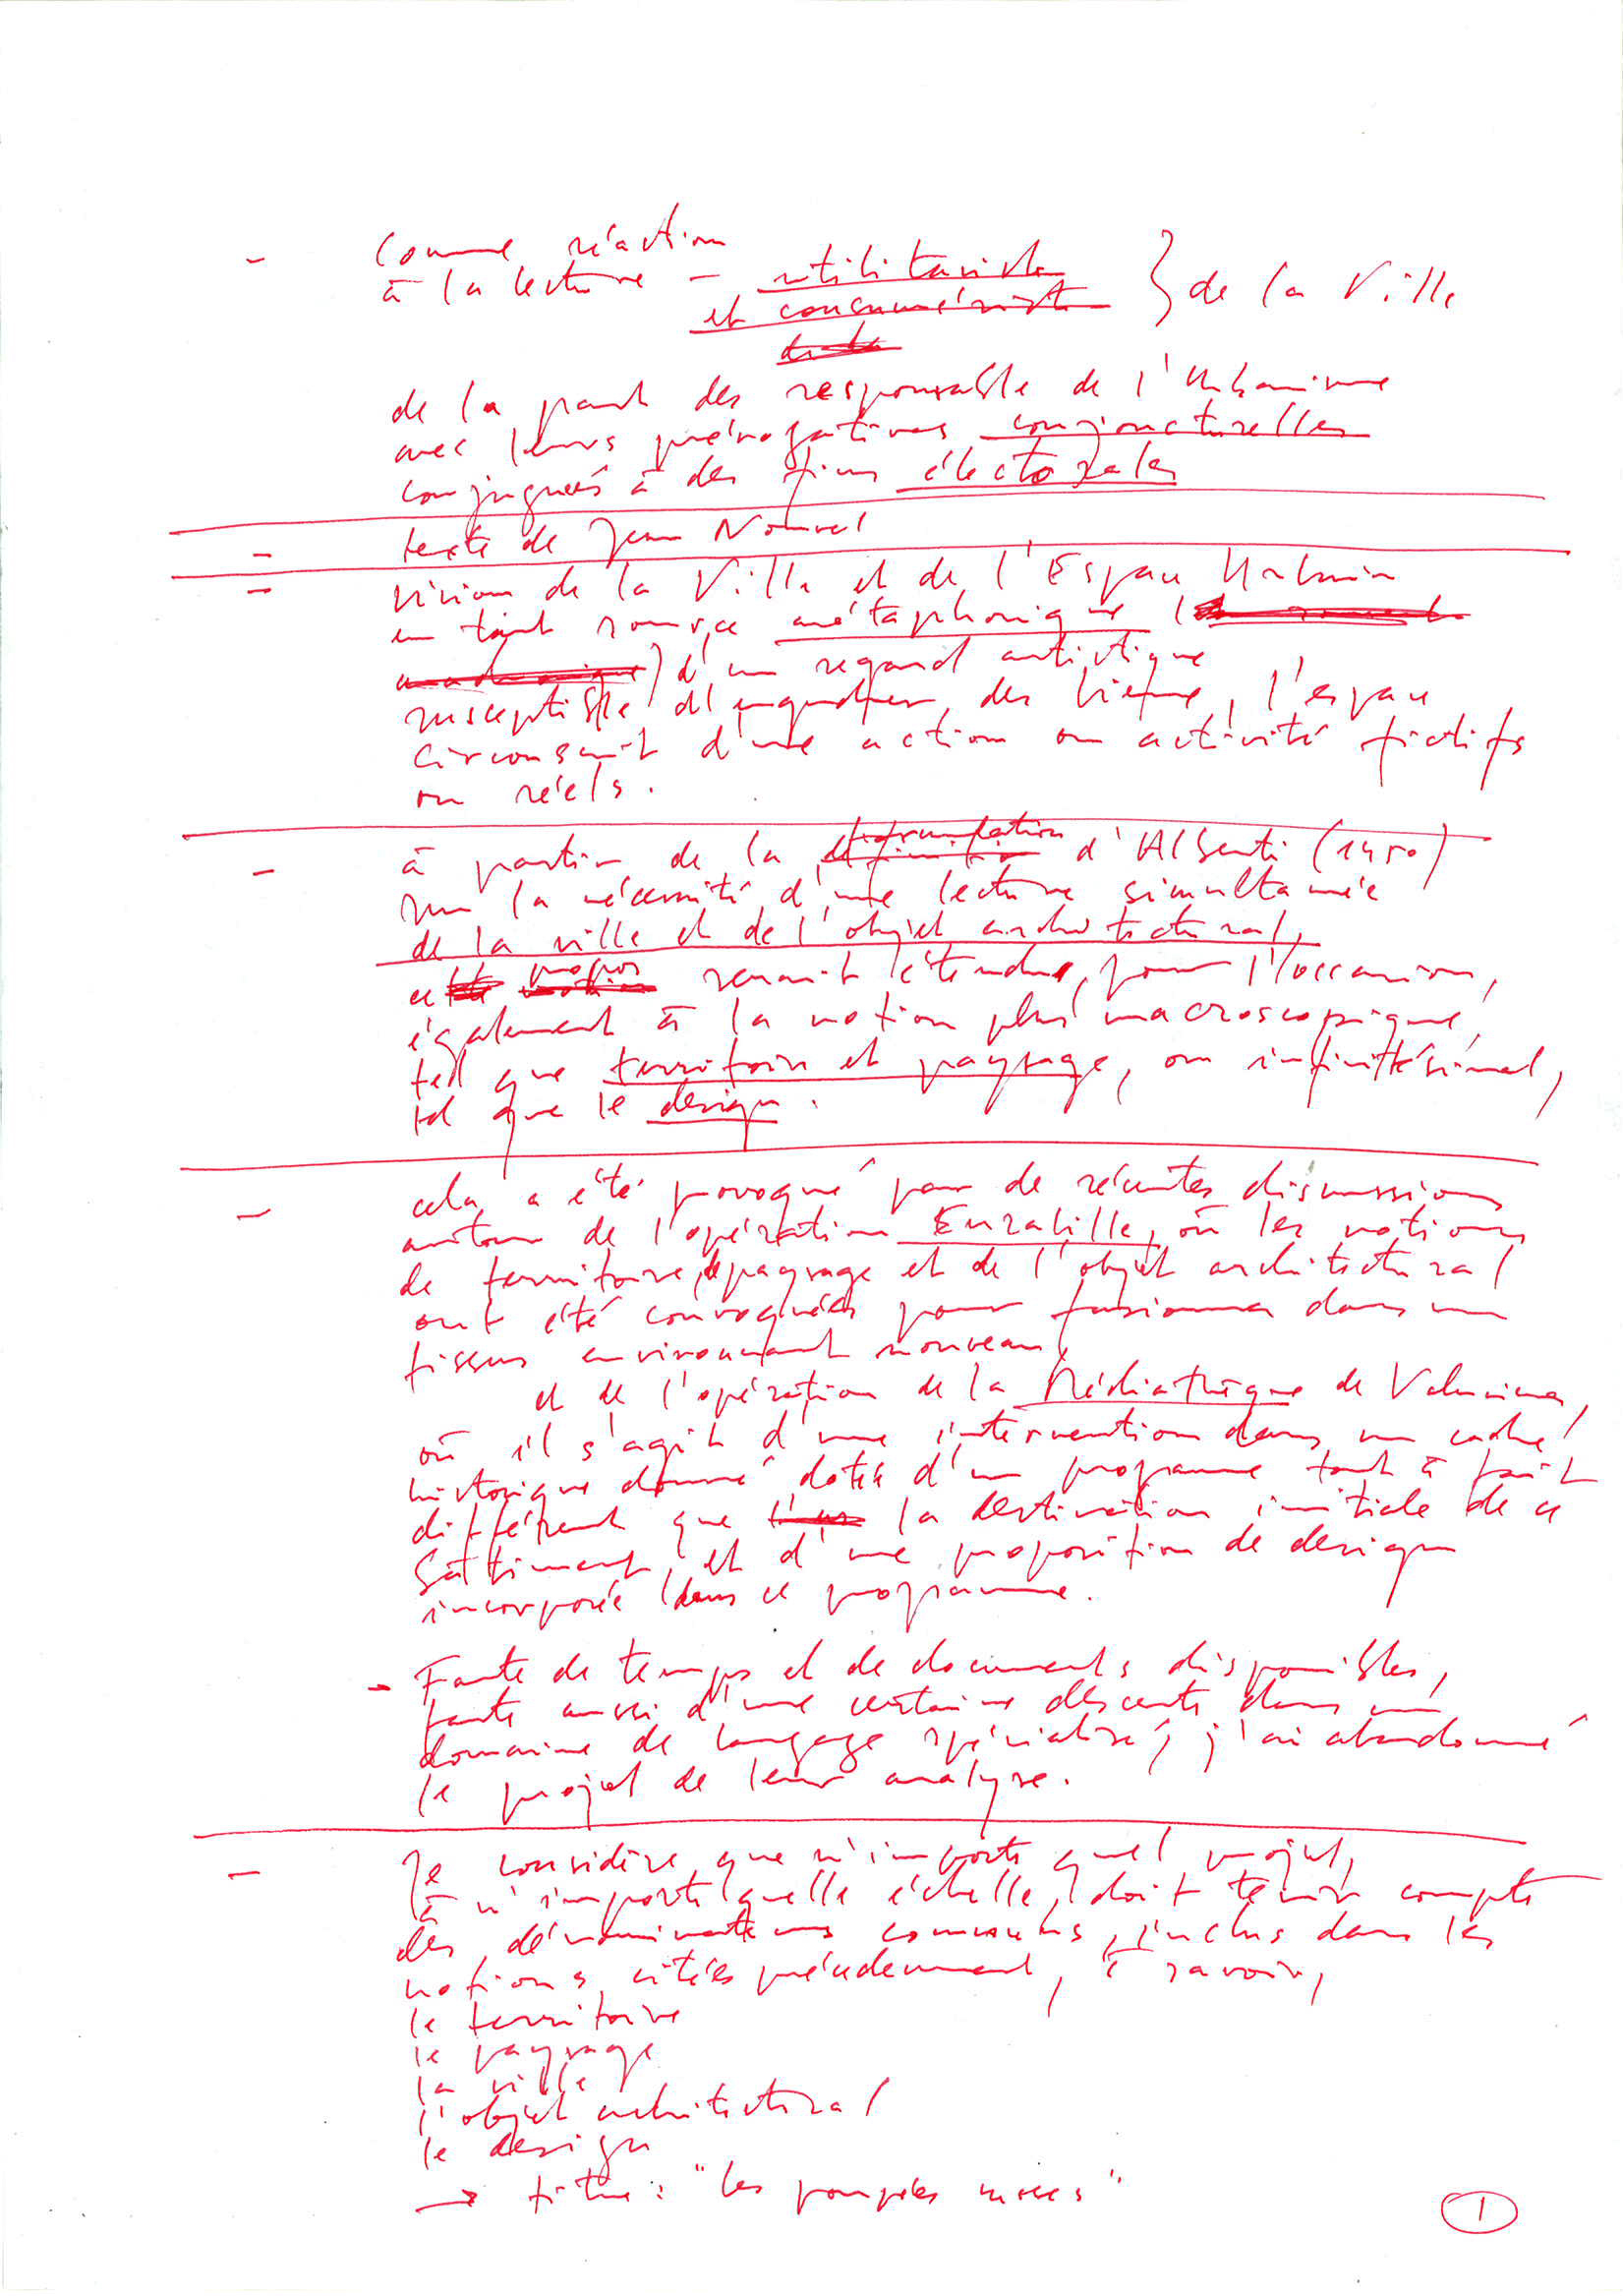 - comme réaction
à la lecture - utilitariste } de la Ville
et consumériste
de la part des responsable de l'Urbanisme
avec leurs prérogatives conjoncturelles
conjuguées à des fins électorales
- texte de Jean Nouvel
- vision de la Ville et de l'Espace Urbain
en tant source métaphorique (
) d'un regard artistique
susceptible d'engendrer des l'espace
circonscrit d'une action ou activité fictifs
ou réels.
- à partir de la formulation d'Alberti (1450)
sur la nécessité d'une lecture simultanée
de la ville et de l'objet architectural,
ce propos serait étendu, pour l'occasion,
également à la notion plus macroscopique,
tel que territoire et paysage, ou infinitésimal,
tel que le design.
- cela a été provoqué par de récentes discussions
autour de l'opération Euralille, où les notions
de territoire, de paysage et de l'objet architectural
ont été convoquées pour fusionner dans un
tissus environnant nouveau,
et de l'opération de la Médiathèque de Valenciennes,
où il s'agit d'une intervention dans un cadre
historique donné, dotée d'un programme tout à fait
différent que la destination initiale de ce
bâtiment, et d'une proposition de design
incorporée dans ce programme.
- Faute de temps et de documents disponibles,
faute aussi d'une certaine descente dans un
domaine de langage spécialisé, j'ai abandonné
le projet de leur analyse.
- Je considère que n'importe quel projet,
à n'importe quelle échelle, doit tenir compte
des dénominateurs communs, inclus dans les
notions citées précédemment, à savoir,
le territoire
le paysage
la ville
l'objet architectural
le design
→ titre : "les poupées russes"
1